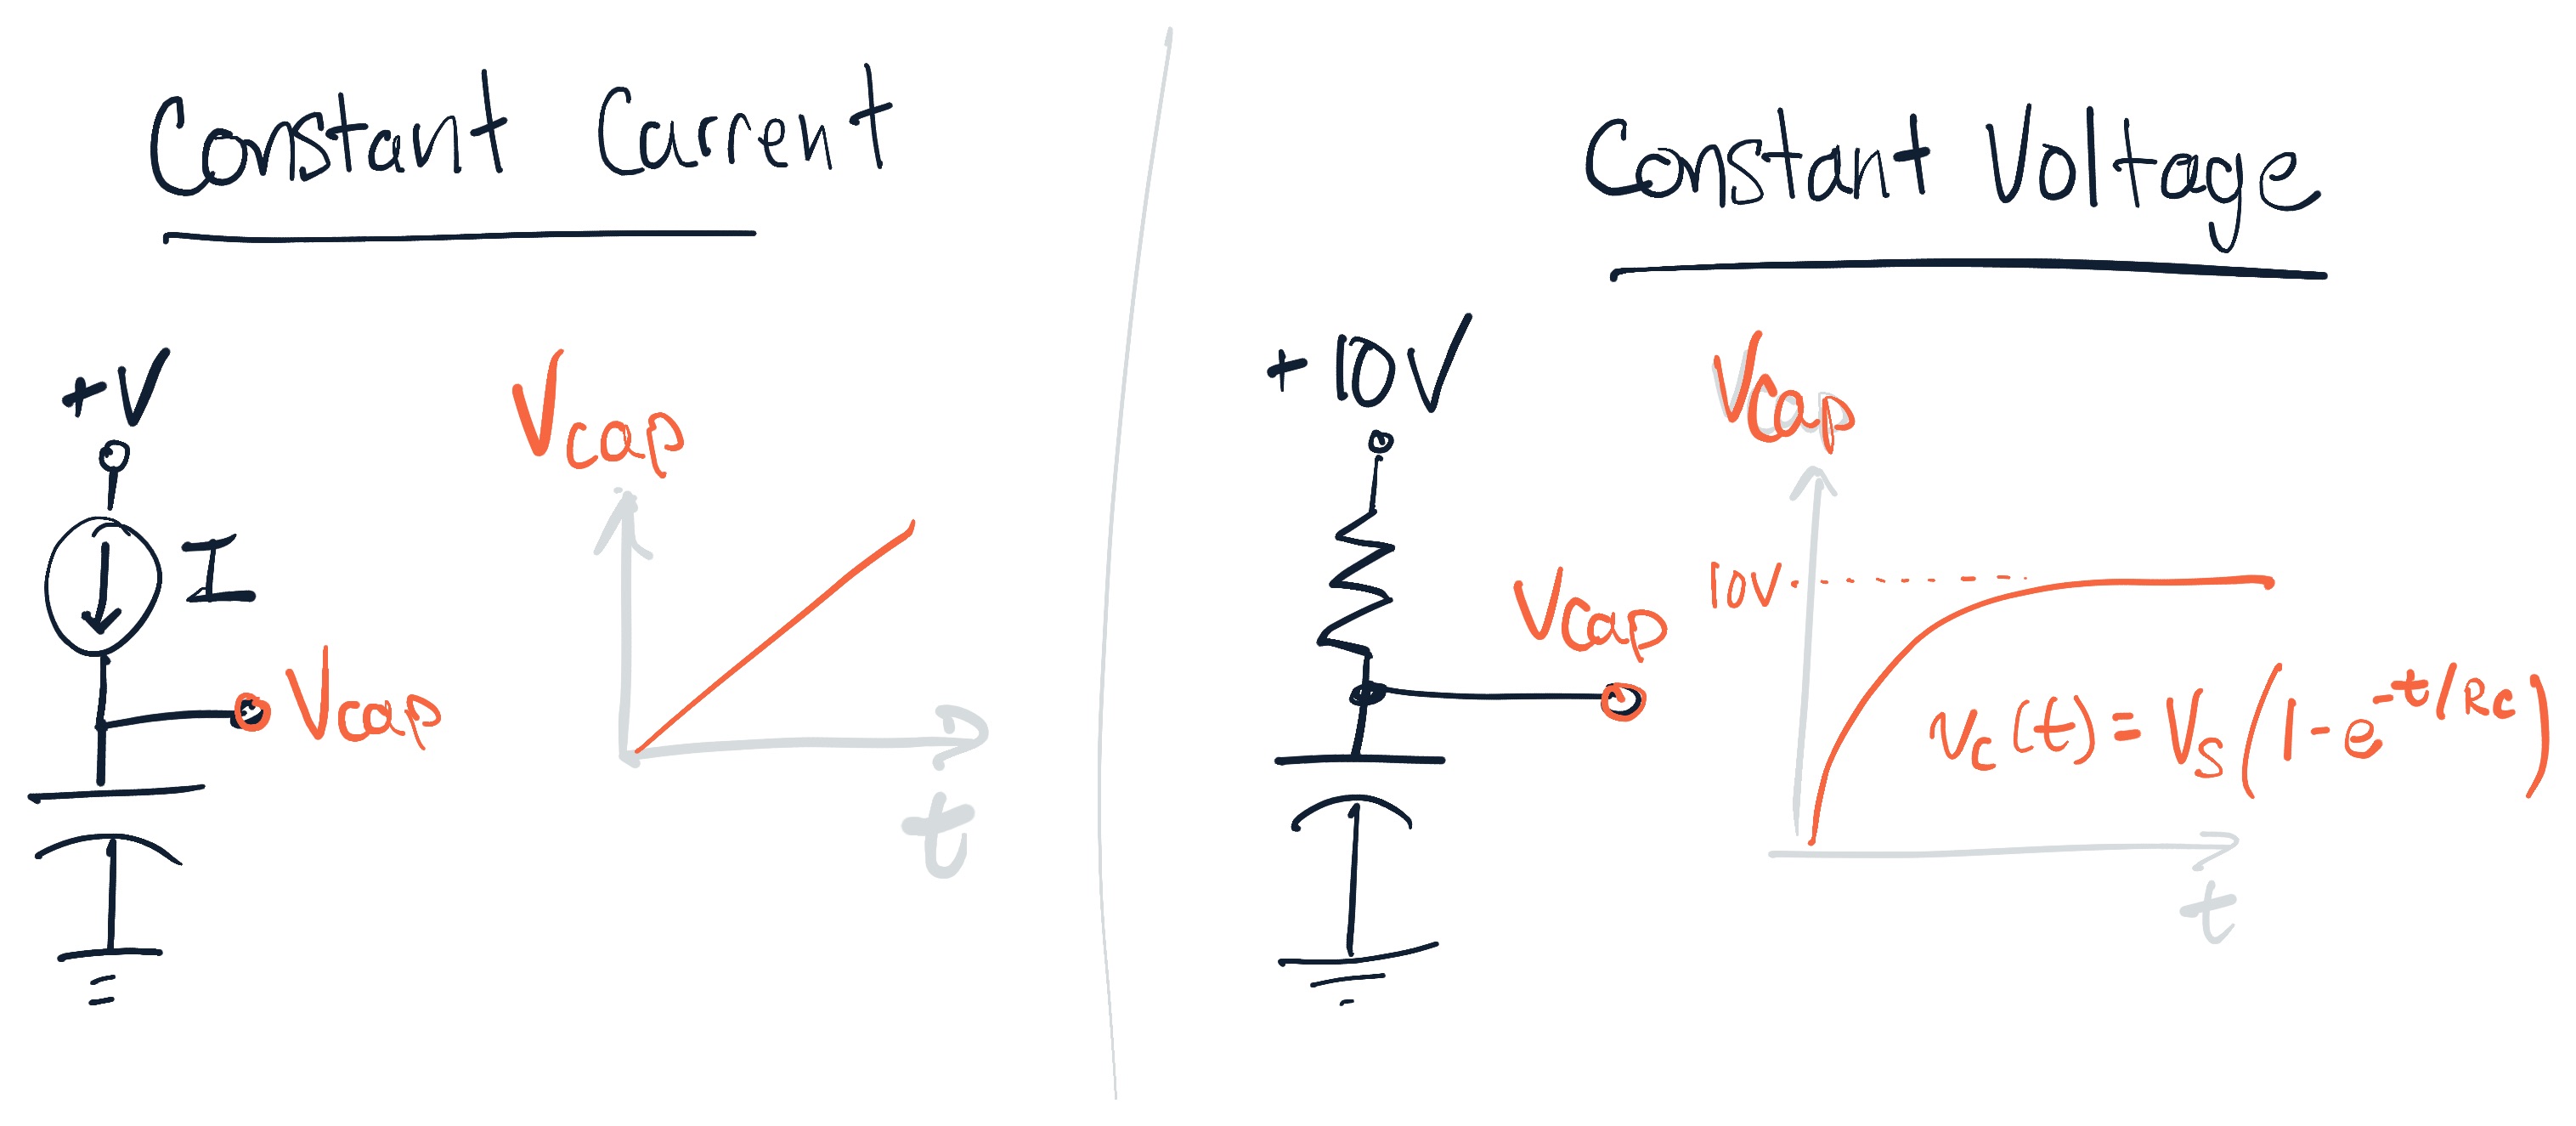 Constant Current
+V
I
Vcap
Vcap
t
Constant Voltage
+10V
Vcap
Vcap
10V
Vc(t) = Vs(1-e^-t/RC)
t